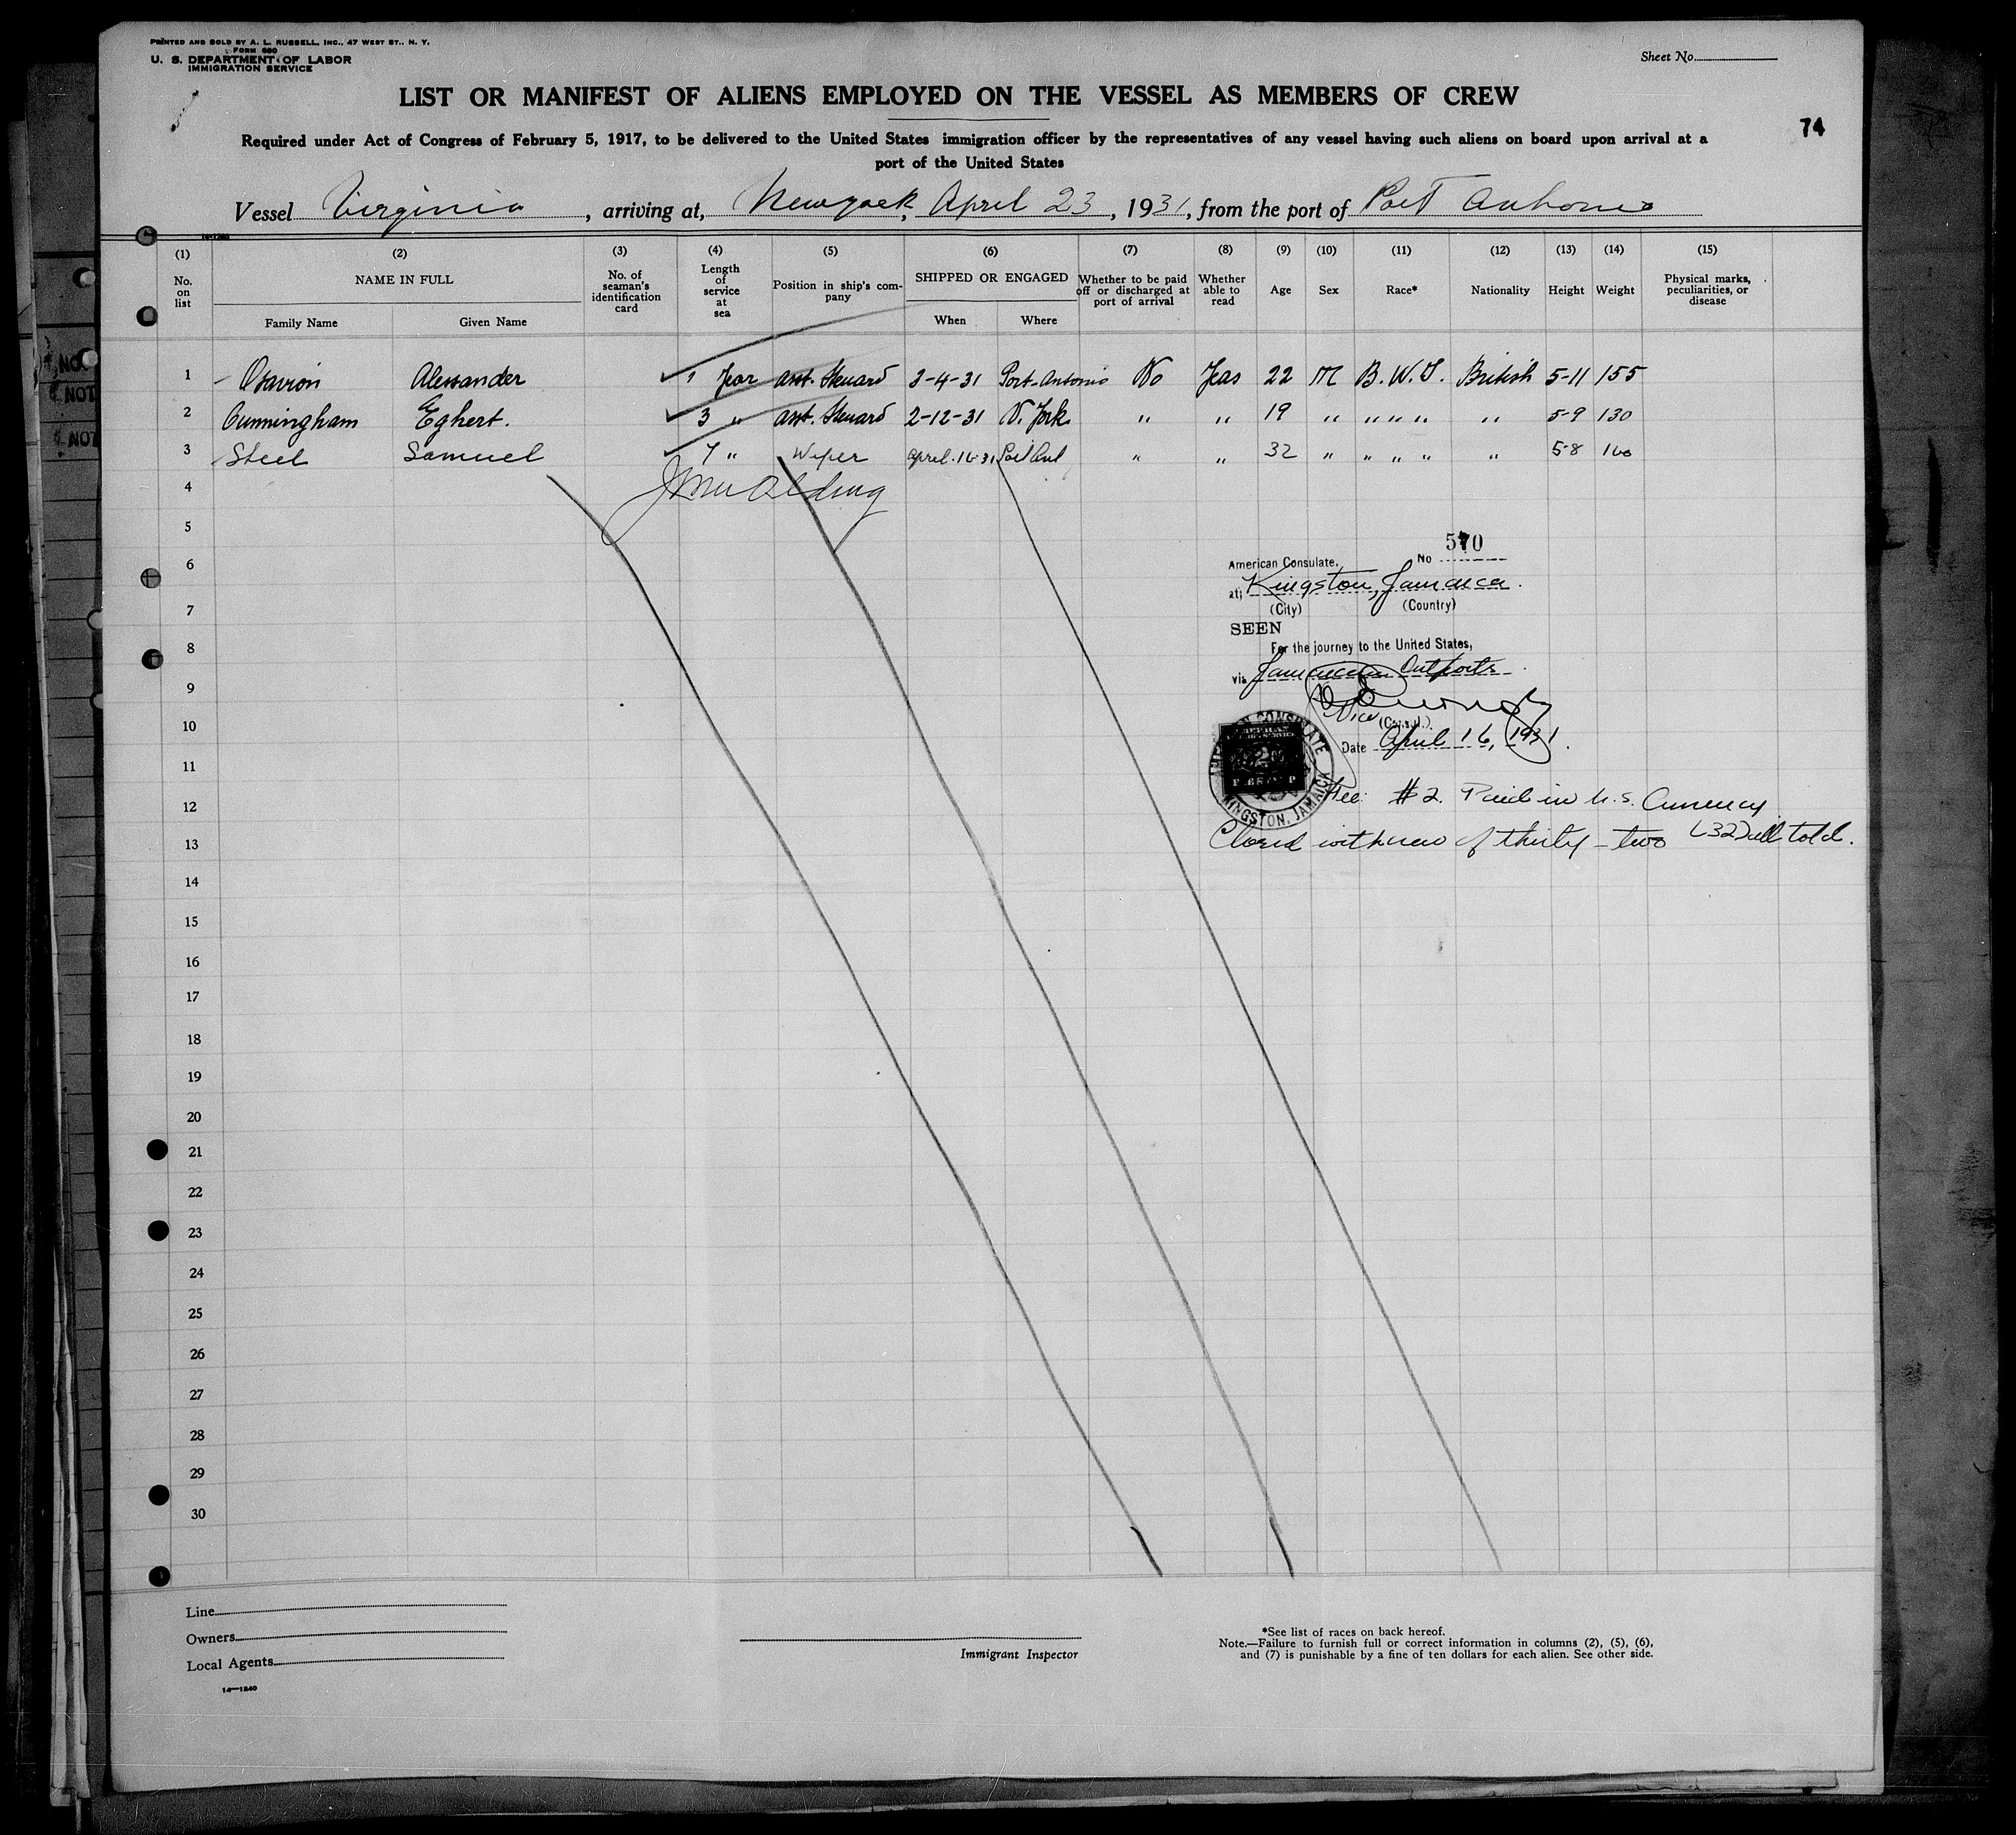 PRINTED AND SOLD BY A. L. RUSSELL, INC., 47 WEST ST., N. Y.
FORM 680
U. S. DEPARTMENT OF LABOR
IMMIGRATION SERVICE
Sheet No.
LIST OR MANIFEST OF ALIENS EMPLOYED ON THE VESSEL AS MEMBERS OF CREW
74
Required under Act of Congress of February 5, 1917, to be delivered to the United States immigration officer by the representatives of any vessel having such aliens on board upon arrival at a
port of the United States
Vessel Virginia, arriving at, Newyork, April 23, 1931, from the port of Port Antonio
(1) (2) (3) (4) (5) (6) (7) (8) (9) (10) (11) (12) (13) (14) (15)
No. on list NAME IN FULL Family Name Given Name No. of seaman's identification card Length of service at sea Position in ship's company SHIPPED OR ENGAGED When Where Whether to be paid off or discharged at port of arrival Whether able to read Age Sex Race* Nationality Height Weight Physical marks, peculiarities, or disease
1 Alessander 1 Year asst. Steuard 3-4-31 Port-Antonio No Yeas 22 M B.W.I. British 5-11 155
2 Cunningham Eghert. 3 " asst. Steuard 2-12-31 N. York " " 19 " " " " " 5-9 130
3 Steel Samuel 7 " Wiper April-16-31 Port Ant " " 32 " " " " " 5-8 160
4
5
6
7
8
9
10
11
12
13
14
15
16
17
18
19
20
21
22
23
24
25
26
27
28
29
30
American Consulate, No 570
at Kingston, Jamaica.
(City) (Country)
SEEN
For the journey to the United States,
via Jamaican Outports
Vice (Consul.)
Date April 16, 1931.
AMERICAN CONSULATE
KINGSTON, JAMAICA
Fee: #2. Paid in U.S. Currency
Closed with crew of thirty-two (32) all told.
Line
Owners
Local Agents
14—1240
Immigrant Inspector
*See list of races on back hereof.
Note.—Failure to furnish full or correct information in columns (2), (5), (6),
and (7) is punishable by a fine of ten dollars for each alien. See other side.